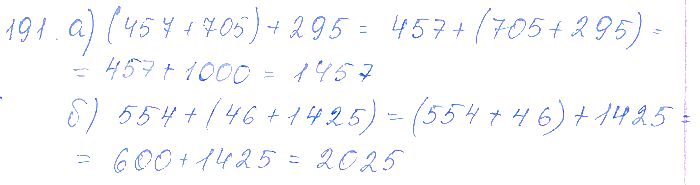 191. а) (457 + 705) + 295 = 457 + (705 + 295) =
= 457 + 1000 = 1457
б) 554 + (46 + 1425) = (554 + 46) + 1425 =
= 600 + 1425 = 2025